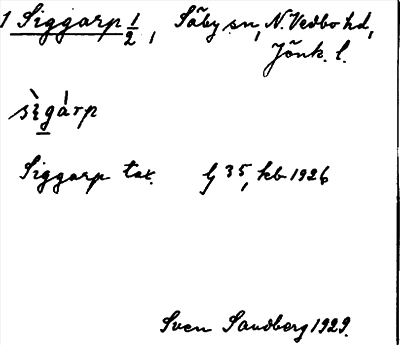 1 Siggarp 1/2, Säby sn, N. Vedbo hd,
Jönk. l.
Siggarp tax. 35, kb 1926
Sven Sandberg 1929.